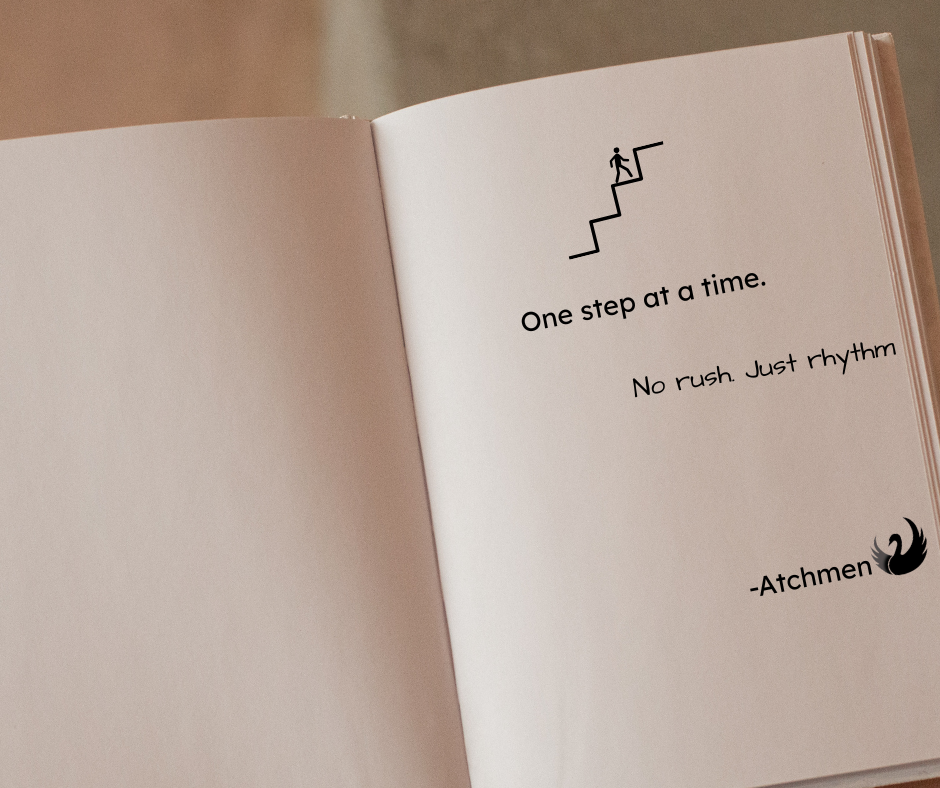 One step at a time.
No rush. Just rhythm
-Atchmen